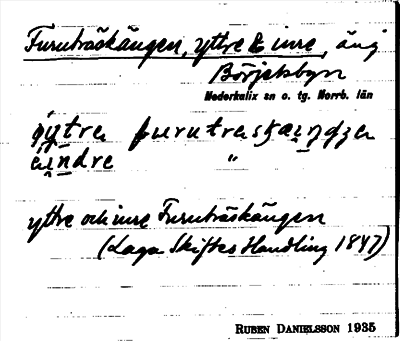 Furuträskängen, yttre & inre, äng
Börjelsbyn
Nederkalix sn o. tg. Norrb. län
"
yttre och inre Furuträskängen
(Laga Skiftes Handling 1847)
RUBEN DANIELSSON 1935